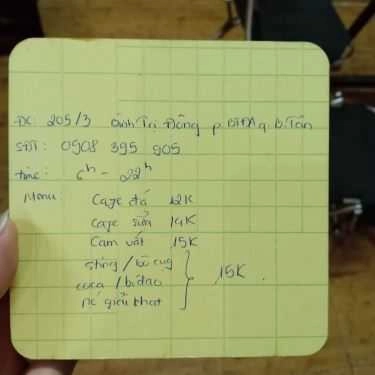 ĐC: 205/3 Đình Trị Đông p BTĐA q. B. Tân
SĐT: 0908 395 905
time: 6h - 22h
Menu Cafe đá 12K
Cafe sữa 14K
Cam vắt 15K
sting / bò cụg
coca / bí đao 15K
né giải khat